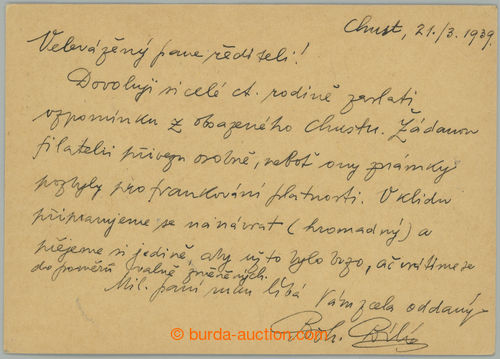 Chust, 21./3. 1939.
Velevážený pane řediteli!
Dovoluji si celé ct. rodině zaslati
vzpomínku z obsazeného Chustu. Žádanou
filatelii přivezu osobně, neboť ony známky
pozbyly pro frankování platnosti. V klidu
připravujeme se na návrat (hromadný) a
přejeme si jedině, aby už to bylo brzo, ač vrátíme se
do poměrů valně změněných.
Mil. paní ruku líbá
Vám zcela oddaný
Boh. Bílý
burda-auction.com